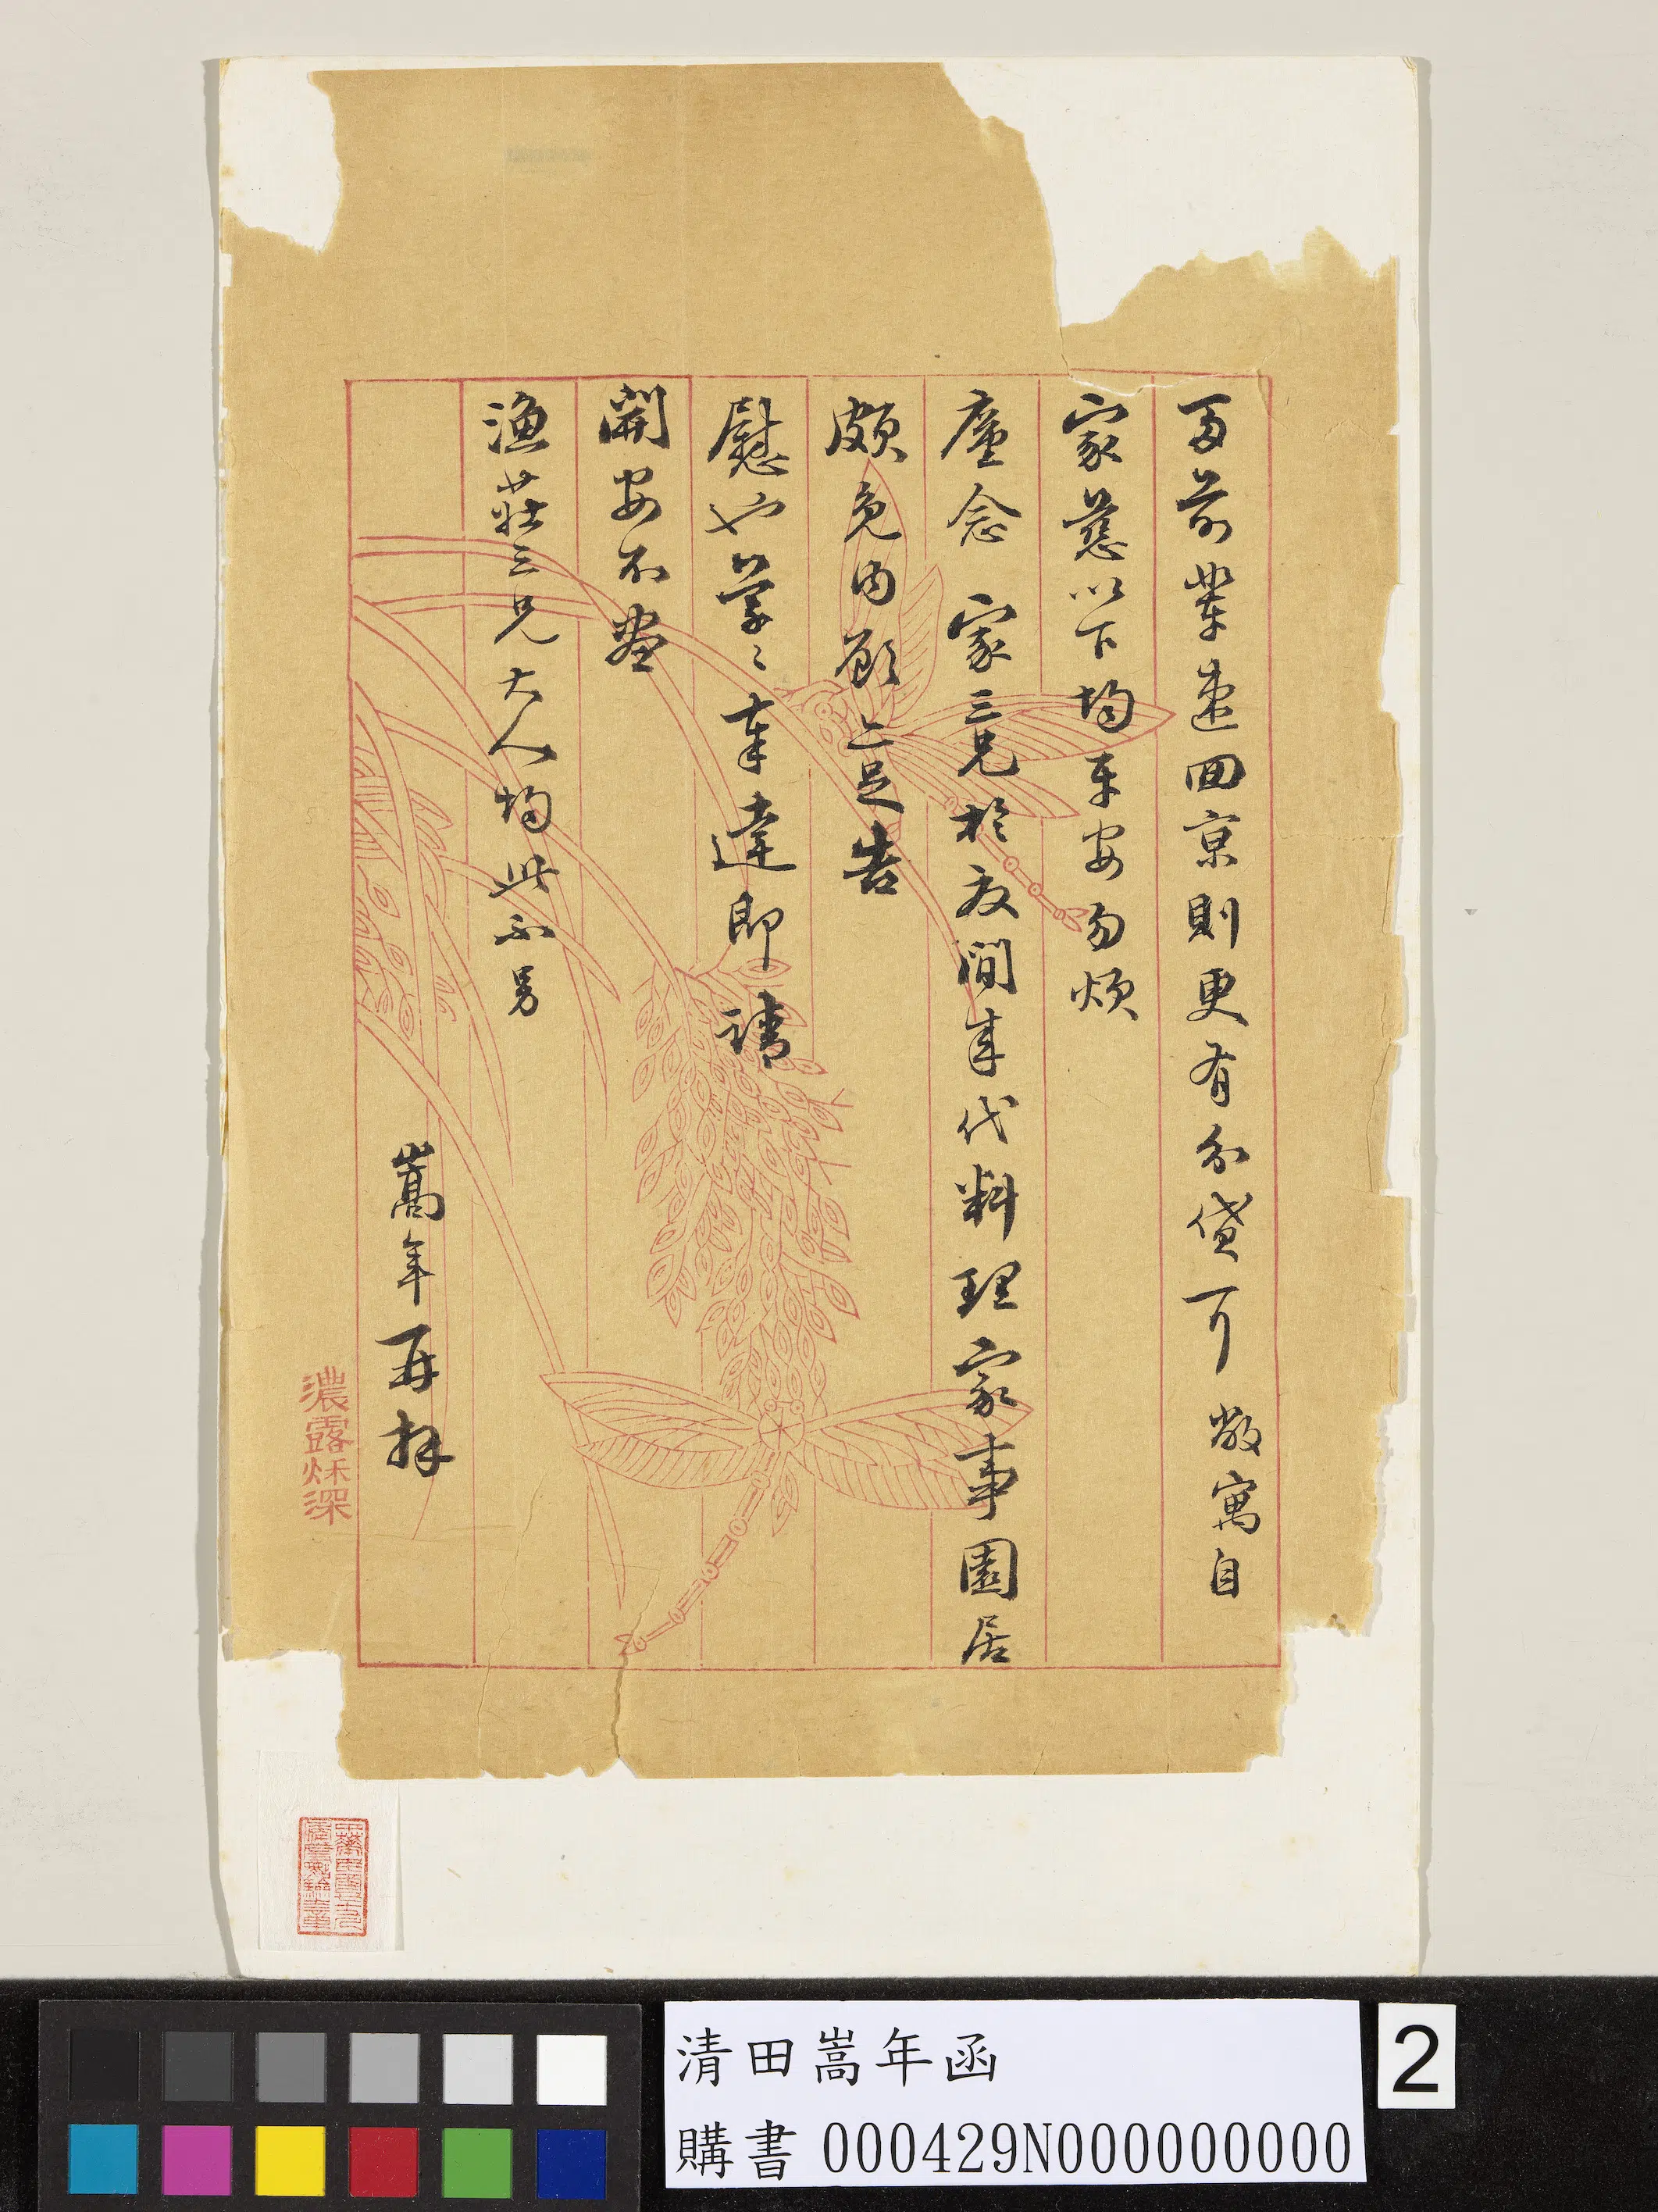 前輩速回京則更有分貸可 敝寓自
家慈以下均平安勿煩
廑念 家三兄於夜間來代料理家事園居
頗免內顧亦足告
慰也草〻奉達即請
開安不盡
漁莊三兄大人均此不另
嵩年再拜
濃露秌深
清田嵩年函
購書 000429N000000000
2